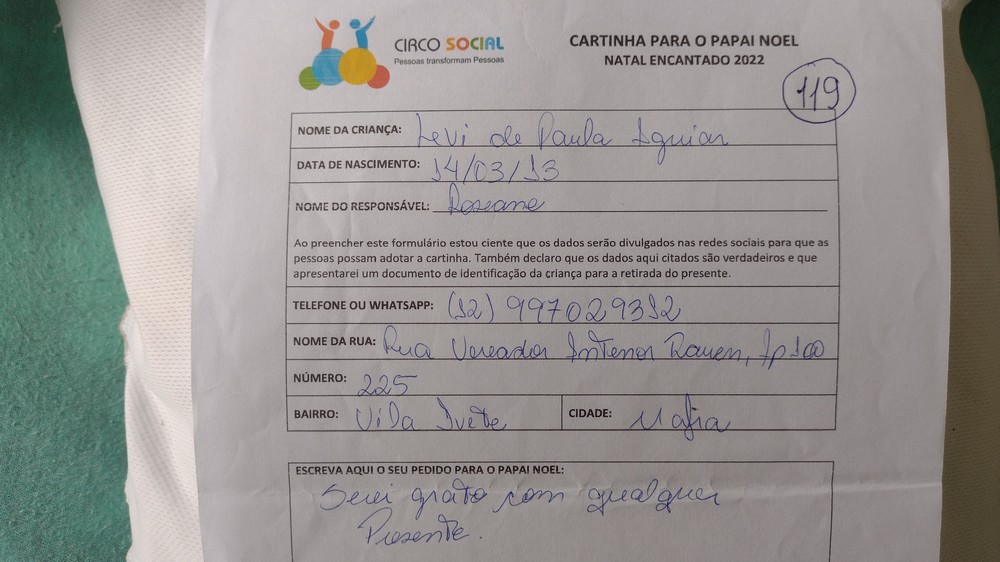 CIRCO SOCIAL
Pessoas transformam Pessoas
CARTINHA PARA O PAPAI NOEL
NATAL ENCANTADO 2022
119
NOME DA CRIANÇA: Levi de Paula Aguiar
DATA DE NASCIMENTO: 14/03/13
NOME DO RESPONSÁVEL: Roseane
Ao preencher este formulário estou ciente que os dados serão divulgados nas redes sociais para que as
pessoas possam adotar a cartinha. Também declaro que os dados aqui citados são verdadeiros e que
apresentarei um documento de identificação da criança para a retirada do presente.
TELEFONE OU WHATSAPP: (12) 997029312
NOME DA RUA: Rua Vereador Antenor Rauen, Ap 100
NÚMERO: 225
BAIRRO: Vila Ivete CIDADE: Mafra
ESCREVA AQUI O SEU PEDIDO PARA O PAPAI NOEL:
Serei grato com qualquer
Presente.